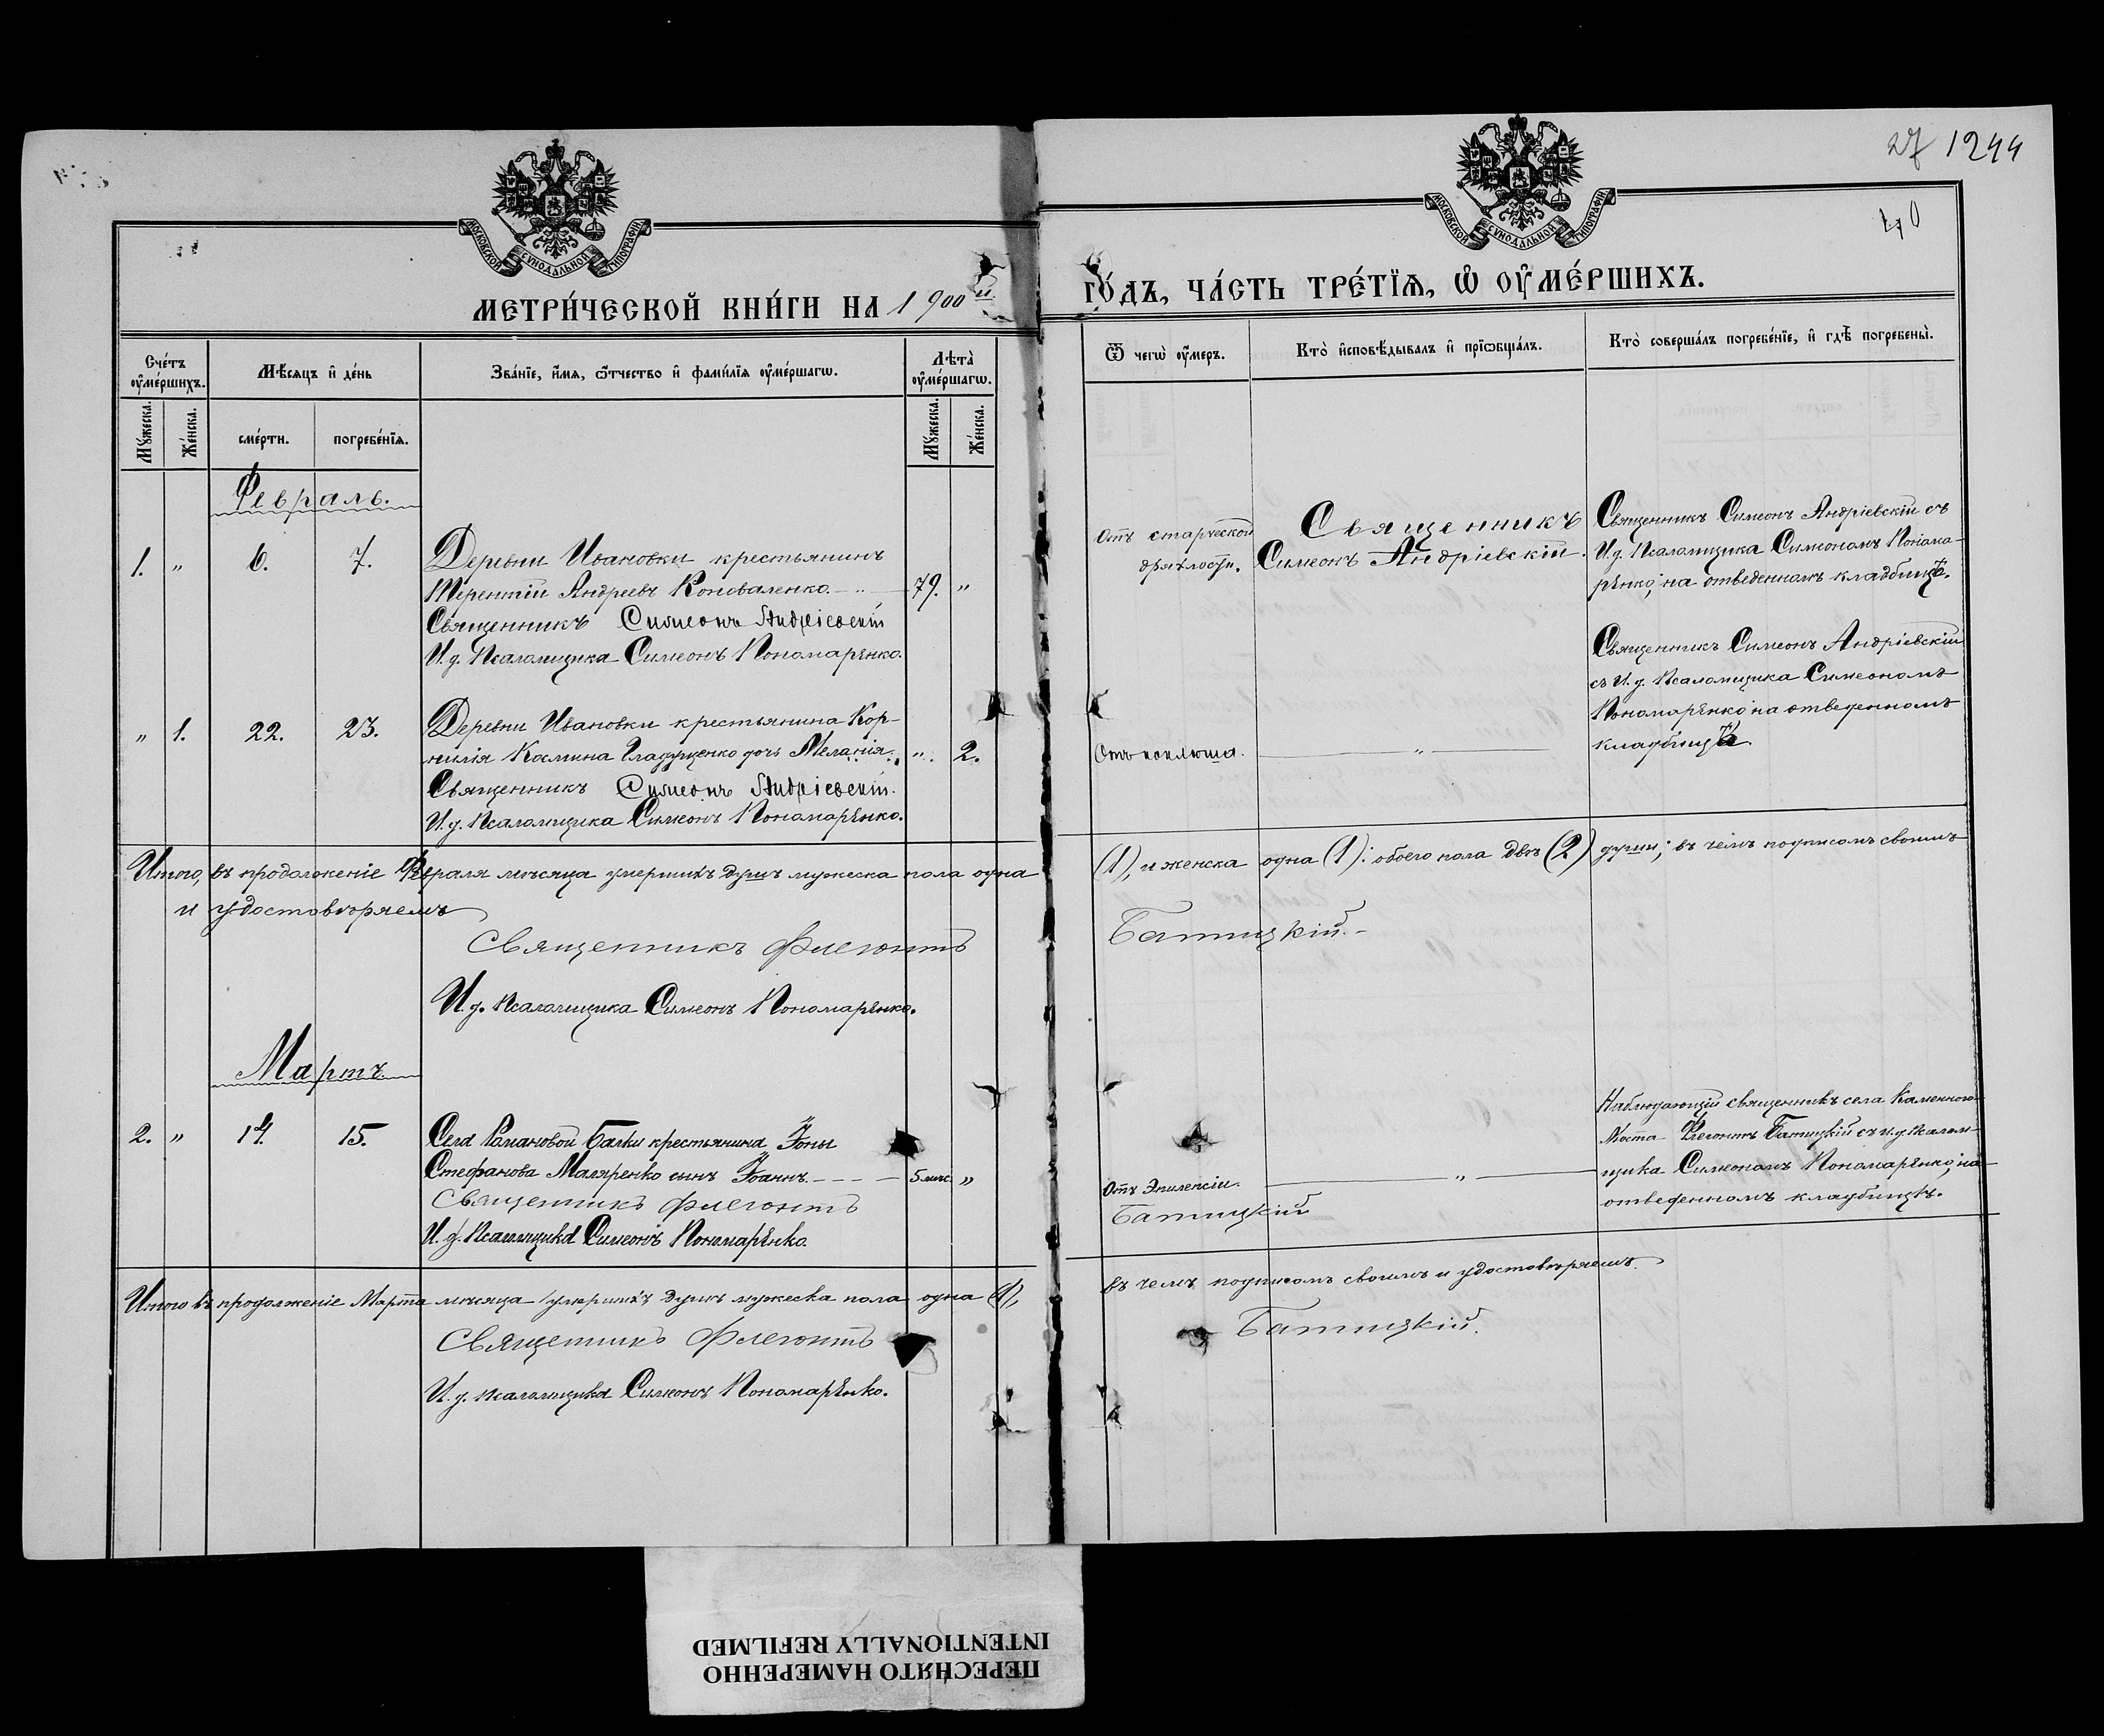 27 1244
40
МОСКОВСКОЙ СѴНОДАЛЬНОЙ ТИПОГРАФІИ.
МОСКОВСКОЙ СѴНОДАЛЬНОЙ ТИПОГРАФІИ.
МЕТРИ́ЧЕСКОЙ КНИ́ГИ НА 1900й
ГО́ДЪ, ЧА́СТЬ ТРЕ́ТЇѦ, Ѡ҆ ОУ҆МЕ́РШИХЪ.
Сче́тъ оу҆ме́ршихъ.
Мѣ́сяцъ и҆ де́нь
Зва́нїе, и҆́мя, ѻ҆́тчество и҆ фами́лїя оу҆ме́ршагѡ.
Лѣта̀ оу҆ме́ршагѡ.
Ѿ чегѡ̀ оу҆́меръ.
Кто̀ и҆сповѣ́дывалъ и҆ прїѡбща́лъ.
Кто̀ соверша́лъ погребе́нїе, и҆ гдѣ̀ погребены̀.
Мꙋ́жеска.
Же́нска.
сме́рти.
погребе́нїя.
Мꙋ́жеска.
Же́нска.
Февраль.
1. " 6. 7.
Деревни Ивановки крестьянинъ
Терентій Андреевъ Коноваленко. 79. "
Священникъ Симеонъ Андріевскій
И. д. Псаломщика Симеонъ Пономарѣнко.
Отъ старческой
дряхлости.
Священникъ
Симеонъ Андріевскій.
Священникъ Симеонъ Андріевскій съ
И. д. Псаломщика Симеономъ Понома-
рѣнко; на отведенномъ кладбищѣ.
" 1. 22. 23.
Деревни Ивановки крестьянина Кор-
нилія Космина Гладущенко дочь Меланія. ". 2.
Священникъ Симеонъ Андріевскій.
И. д. Псаломщика Симеонъ Пономарѣнко.
Отъ коклюша.
"
Священникъ Симеонъ Андріевскій
съ И. д. Псаломщика Симеономъ
Пономарѣнко; на отведенномъ
кладбищѣ.
Итого, въ продолженіе Февраля мѣсяца умершихъ душъ мужеска пола одна (1), и женска одна (1): обоего пола двѣ (2) души; въ чемъ подписомъ своимъ
и удостовѣряемъ
Священникъ Флегонтъ Батицкій.
И. д. Псаломщика Симеонъ Пономарѣнко.
Мартъ.
2. " 14. 15.
Села Романовой Балки крестьянина Іоны
Стефанова Маляренко сынъ Іоаннъ. 5 мѣс. "
Священникъ Флегонтъ Батицкій
И. д. Псаломщика Симеонъ Пономарѣнко.
Отъ Эпилепсіи.
"
Наблюдающій священникъ села Каменного
Моста Флегонтъ Батицкій съ и. д. псалом-
щика Симеономъ Пономарѣнко; на
отведенномъ кладбищѣ.
Итого въ продолженіе Марта мѣсяца умершихъ душъ мужеска пола одна (1), въ чемъ подписомъ своимъ и удостовѣряемъ.
Священникъ Флегонтъ Батицкій.
И. д. псаломщика Симеонъ Пономарѣнко.
ПЕРЕСНЯТО НАМЕРЕННО
INTENTIONALLY REFILMED